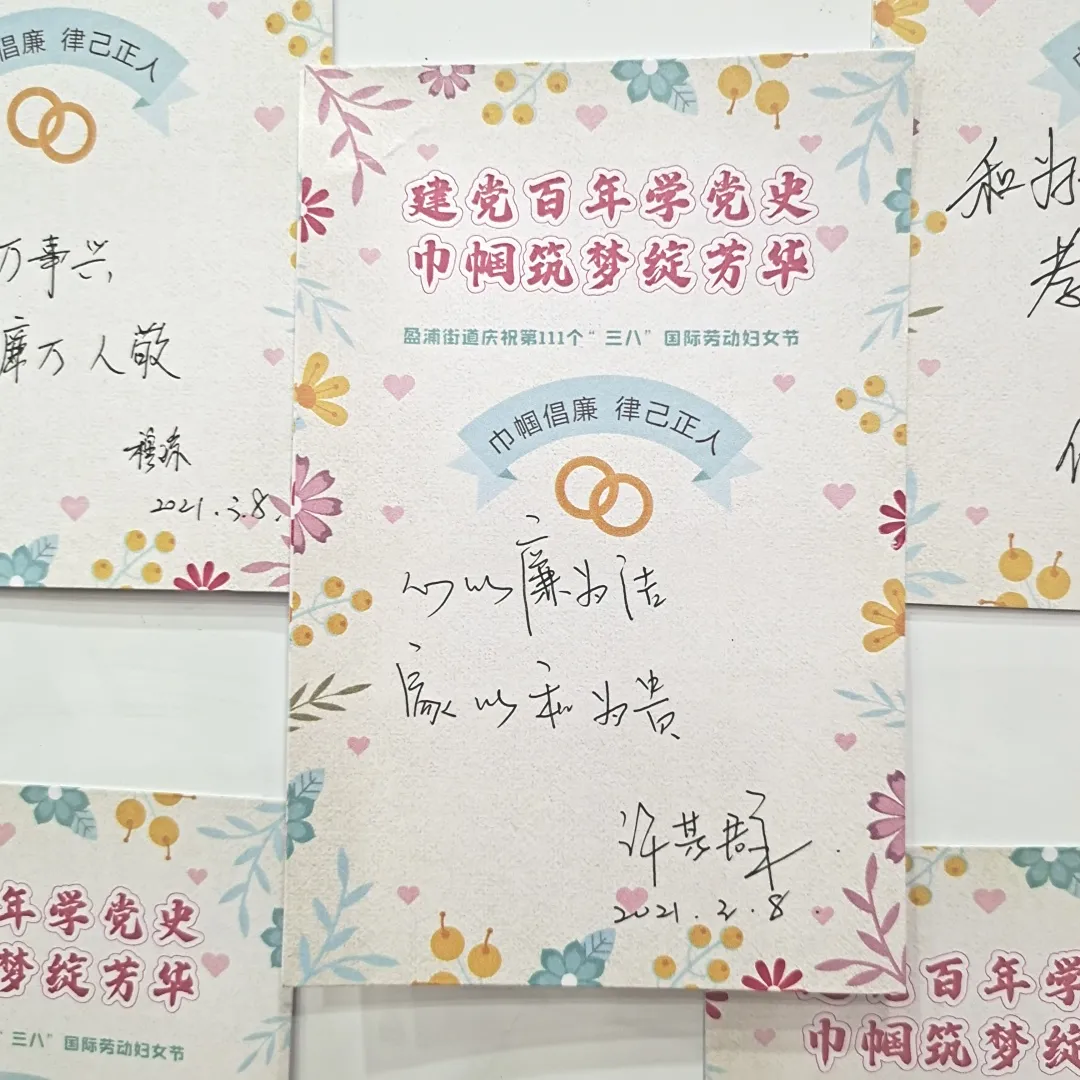 倡廉 律己正人
万事兴
廉万人敬
穆琼
2021.3.8.
建党百年学党史
巾帼筑梦绽芳华
盈浦街道庆祝第111个“三八”国际劳动妇女节
巾帼倡廉 律己正人
心以廉为洁
家以和为贵
许慕群
2021.3.8
和为
孝
年学党史
梦绽芳华
”三八” 国际劳动妇女节
建党百年学
巾帼筑梦绽